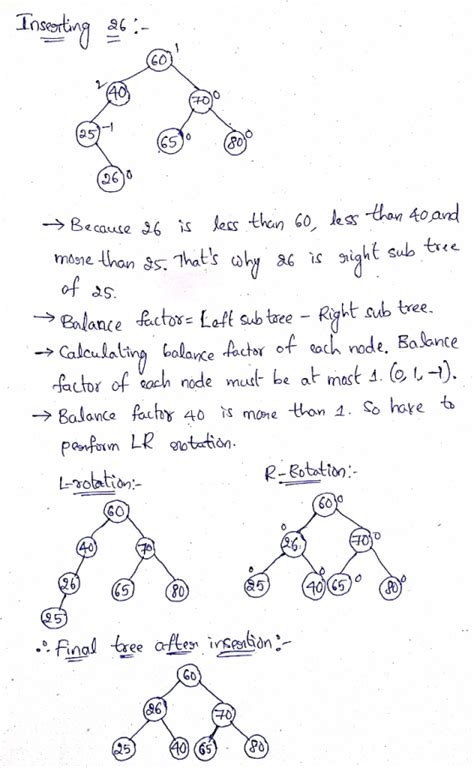 Inserting 26 :-
60 1
2 40 70 0
25 -1 65 0 80 0
26 0
→ Because 26 is less than 60, less than 40, and
more than 25. That's why 26 is right sub tree
of 25.
→ Balance factor = Left sub tree - Right sub tree.
→ Calculating balance factor of each node. Balance
factor of each node must be at most 1. (0, 1, -1).
→ Balance factor 40 is more than 1. So have to
perform LR rotation.
L-rotation:-
60
40 70
26 65 80
25
R-Rotation:-
60 0
0 26 70 0
0 25 40 0 65 0 80 0
∴ Final tree after insertion:-
60
26 70
25 40 65 80